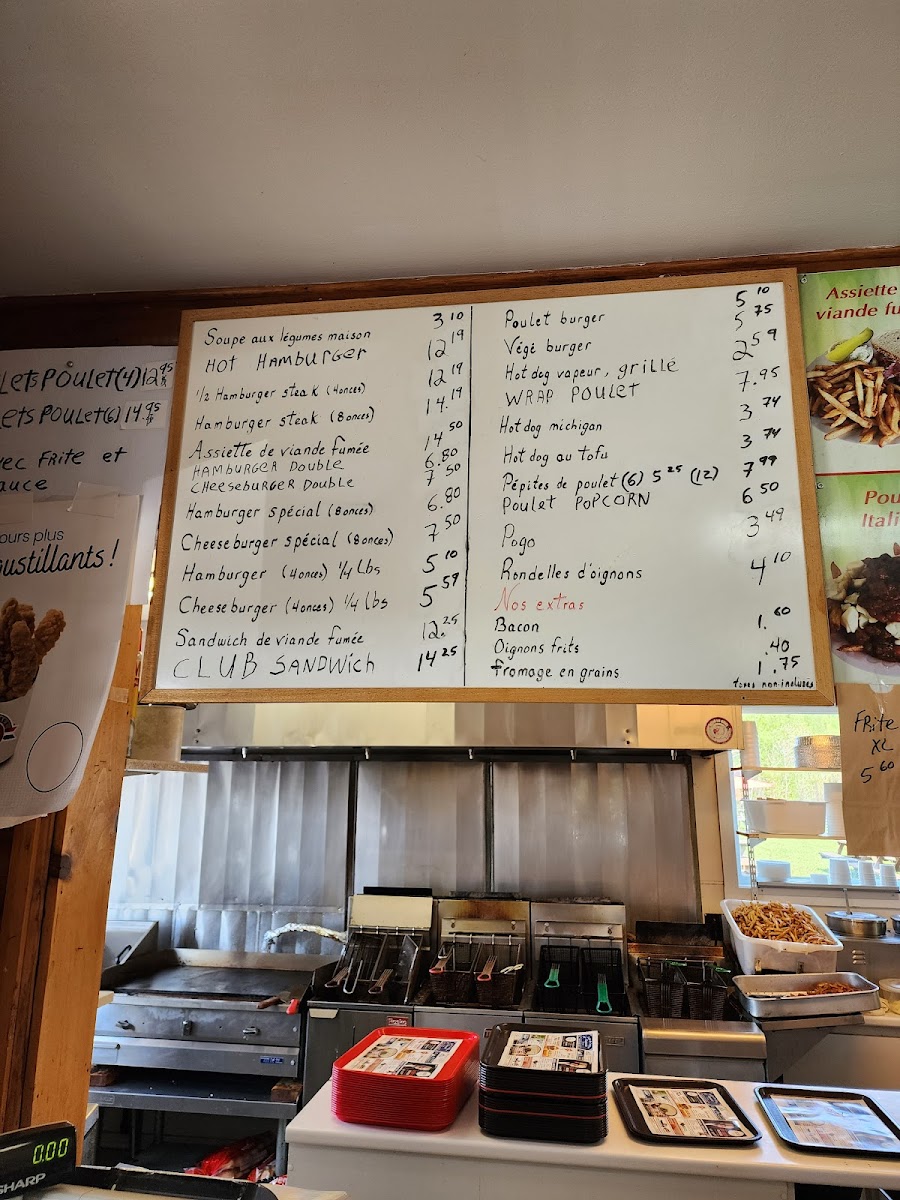 LETS POULET(4) 12.95
ETS POULET(6) 14.95
VEC FRITE et
AUCE
ours plus
oustillants !
Soupe aux légumes maison 3 10
HOT HAMBURGER 12 19
1/2 Hamburger steak (4onces) 12 19
Hamburger steak (8onces) 14.19
Assiette de viande fumée 14 50
HAMBURGER DOUBLE 6.80
CHEESEBURGER DOUBLE 7 50
Hamburger spécial (8onces) 6.80
Cheeseburger spécial (8onces) 7 50
Hamburger (4onces) 1/4 Lbs 5 10
Cheeseburger (4onces) 1/4 Lbs 5 59
Sandwich de viande fumée 12.25
CLUB SANDWICH 14 25
Poulet burger 5 10
Végé burger 5 75
Hot dog vapeur, grillé 2 59
WRAP POULET 7.95
Hot dog michigan 3 74
Hot dog au tofu 3 74
Pépites de poulet (6) 5 25 (12) 7 99
Poulet POPCORN 6 50
Pogo 3 49
Rondelles d'oignons 4 10
Nos extras
Bacon 1.60
Oignons frits .40
fromage en grains 1.75
taxes non-incluses
Assiette
viande fu
Pou
Itali
FRite
XL
5 60
0.00
SHARP